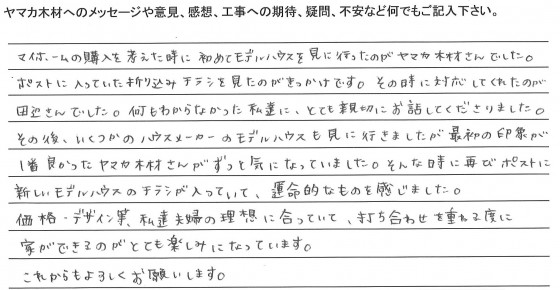 ヤマカ木材へのメッセージや意見、感想、工事への期待、疑問、不安など何でもご記入下さい。
マイホームの購入を考えた時に初めてモデルハウスを見に行ったのがヤマカ木材さんでした。
ポストに入っていた折り込みチラシを見たのがきっかけです。その時に対応してくれたのが
田辺さんでした。何もわからなかった私達に、とても親切にお話してくださりました。
その後、いくつかのハウスメーカーのモデルハウスも見に行きましたが最初の印象が
1番良かったヤマカ木材さんがずっと気になっていました。そんな時に再びポストに
新しいモデルハウスのチラシが入っていて、運命的なものを感じました。
価格・デザイン等、私達夫婦の理想に合っていて、打ち合わせを重ねる度に
家ができるのがとても楽しみになっています。
これからもよろしくお願いします。